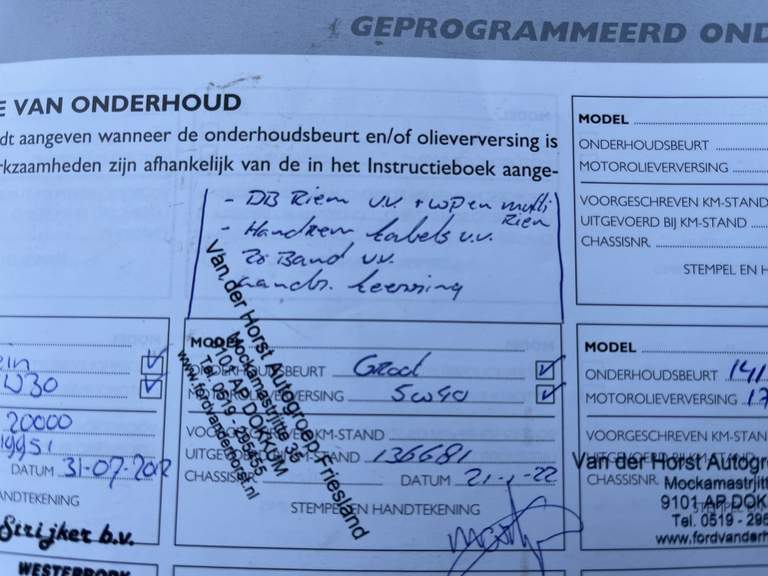 GEPROGRAMMEERD OND
E VAN ONDERHOUD
dt aangeven wanneer de onderhoudsbeurt en/of olieverversing is
rkzaamheden zijn afhankelijk van de in het Instructieboek aange-
- DB Riem v.v. + WP en multi
Riem
- Handrem kabels v.v.
Band v.v.
MODEL
ONDERHOUDSBEURT
MOTOROLIEVERVERSING
VOORGESCHREVEN KM-STAND
UITGEVOERD BIJ KM-STAND
CHASSISNR.
STEMPEL EN H
W30
20000
DATUM 31-07-2012
NDTEKENING
Strijker b.v.
WESTERBORK
MODEL
ONDERHOUDSBEURT Groot
MOTOROLIEVERVERSING 5W40
KM-STAND
STAND 136681
CHASSISNR. DATUM 21-1-22
STEMPEL EN HANDTEKENING
Van der Horst Autogroep Friesland
Mockamastrjitte 35
9101 AP DOKKUM
Tel. 0519 - 296455
www.fordvanderhorst.nl
MODEL
ONDERHOUDSBEURT 141
MOTOROLIEVERVERSING 17
VOORGESCHREVEN KM-STAN
CHASSISNR.
Van der Horst Autogr
Mockamastrjitt
9101 AP DOK
Tel. 0519 - 296
www.fordvanderh